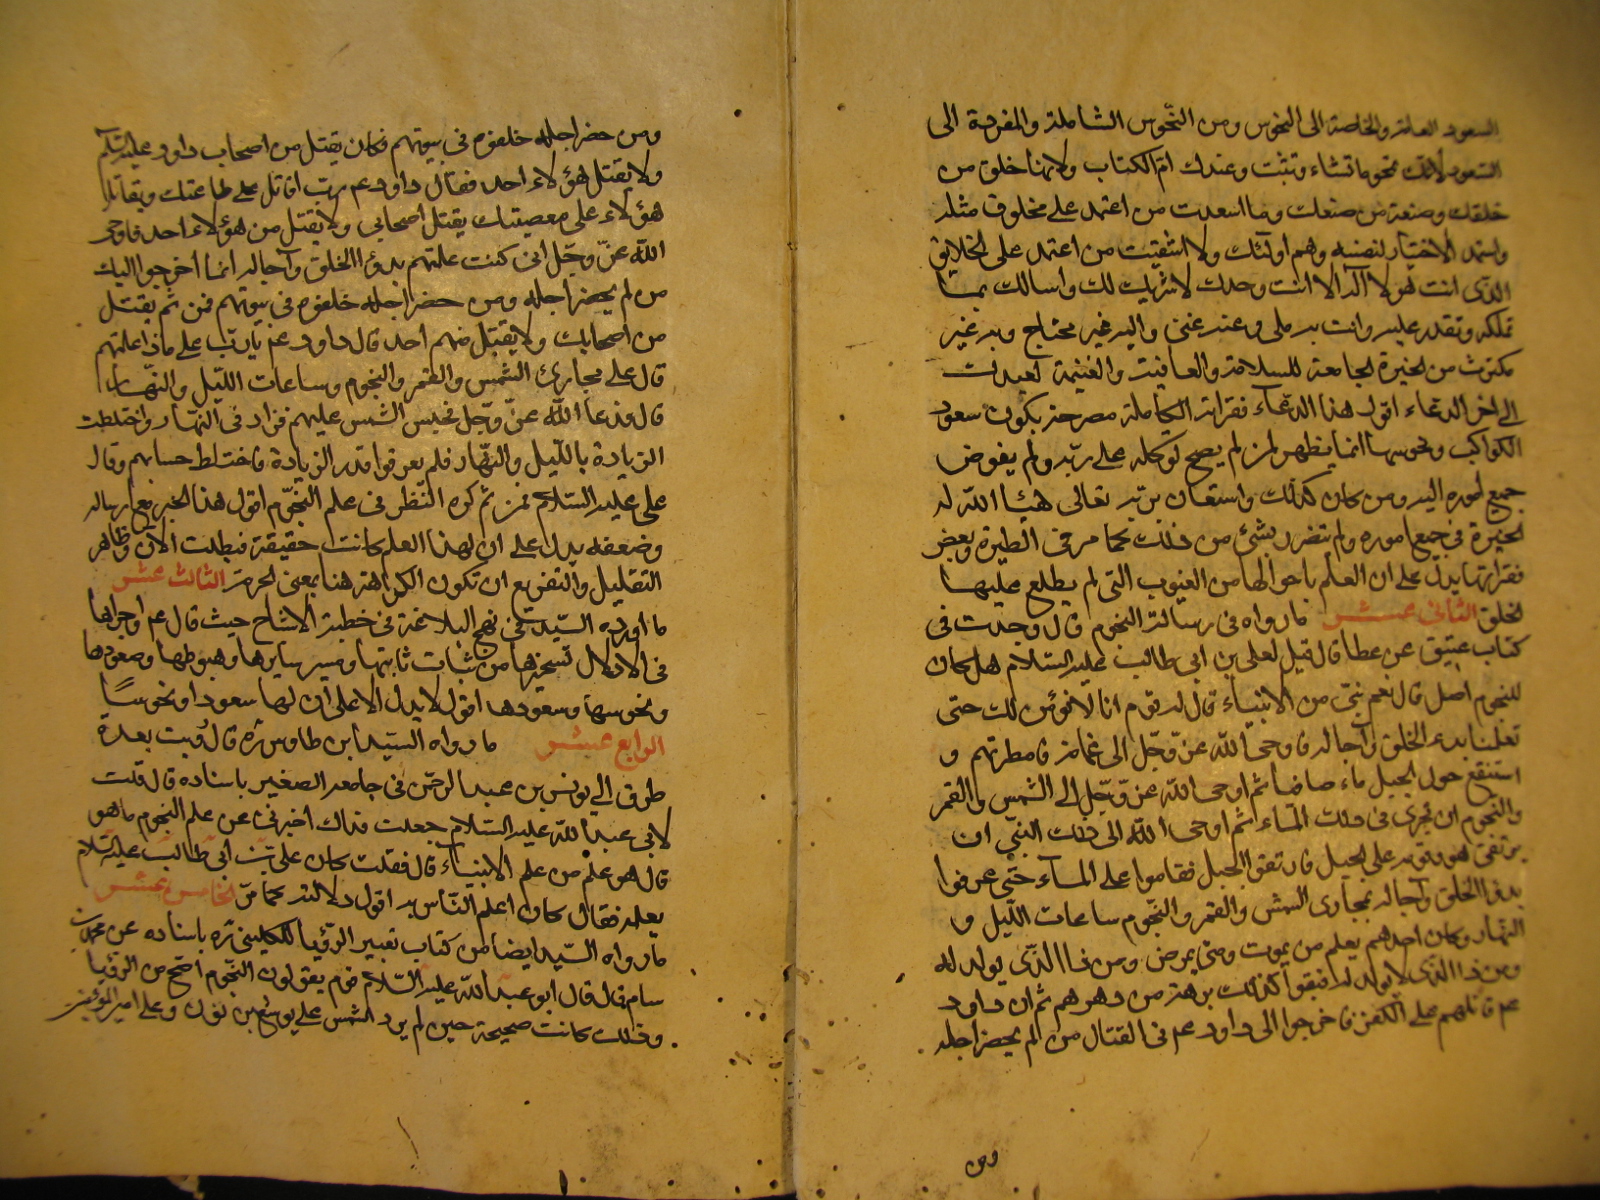 السعود العامة والخاصة الى النحوس ومن النحوس الشاملة والمفردة الى
السعود لانك تمحو ما تشاء وتثبت وعندك ام الكتاب ولانها خلق من
خلقك وصنعة من صنعك وما اسعدت من اعتمد على مخلوق مثله
واستمد الاختيار لنفسه وهم اولئك ولا اشقيت من اعتمد على الخالق
الذي انت هو لا اله الا انت وحدك لا شريك لك واسالك بما
تملكه وتقدر عليه وانت به ملي وعنه غني واليه غير محتاج وبه غير
مكترث من الخيرة الجامعة للسلامة والعافية والغنيمة لعبدك
الى اخر الدعاء اقول هذا الدعاء فقراته الكاملة مصرحة بكون سعود
الكواكب ونحوسها انما يظهر لمن لم يصح توكله على ربه ولم يفوض
جميع اموره اليه ومن كان كذلك واستعان بربه تعالى هيأ الله له
الخيرة في جميع اموره ولم تضره بشئ من ذلك كما مر في الطيرة وبعض
فقراتها يدل على ان العلم باحوالها من الغيوب التي لم يطلع عليها
الخلق الثاني عشر ما رواه في رسالة النجوم قال وجدت في
كتاب عتيق عن عطا قال قيل لعلي بن ابي طالب عليه السلام هل كان
للنجوم اصل قال نعم نبي من الانبياء قال له قوم انا لا نؤمن لك حتى
تعلمنا بدء الخلق وآجاله فاوحى الله عز وجل الى غمامة فامطرتهم و
استنقع حول الجبل ماء صافيا ثم اوحى الله عز وجل الى الشمس والقمر
والنجوم ان تجري في ذلك الماء ثم اوحى الله الى ذلك النبي ان
يرتقي هو وقومه على الجبل فارتقوا الجبل فقاموا على الماء حتى عرفوا
بدء الخلق وآجاله بمجاري الشمس والقمر والنجوم ساعات الليل و
النهار وكان احدهم يعلم من يموت ومتى يمرض ومن ذا الذي يولد له
ومن ذا الذي لا يولد له فبقوا كذلك برهة من دهرهم ثم ان داود
عم قاتلهم على الكفر فاخرجوا الى داود عم في القتال من لم يحضر اجله
ومن
ومن حضر اجله خلفوه في بيوتهم فكان يقتل من اصحاب داود عليه السلم
ولا يقتل من هؤلاء احد فقال داود عم رب اقاتل على طاعتك ويقاتل
هؤلاء على معصيتك يقتل اصحابي ولا يقتل من هؤلاء احد فاوحى
الله عز وجل اني كنت علمتهم بدؤ الخلق وآجاله انما اخرجوا اليك
من لم يحضر اجله ومن حضر اجله خلفوه في بيوتهم فمن ثم يقتل
من اصحابك ولا يقتل منهم احد قال داود عم يا رب على ماذا علمتهم
قال على مجاري الشمس والقمر والنجوم وساعات الليل والنهار
قال فدعا الله عز وجل فحبس الشمس عليهم فزاد في النهار واختلطت
الزيادة بالليل والنهار فلم يعرفوا قدر الزيادة فاختلط حسابهم وقال
علي عليه السلام فمن ثم كره النظر في علم النجوم اقول هذا الخبر مع ارساله
وضعفه يدل على ان لهذا العلم كانت حقيقة فبطلت الان وظاهر
التعليل والتفريع ان تكون الكراهة هنا بمعنى الحرمة الثالث عشر
ما اورده السيد في نهج البلاغة في خطبة الاشباح حيث قال عم واجراها
في الاذلال تسخيرها من ثبات ثابتها ومسير سايرها وهبوطها وصعودها
ونحوسها وسعودها اقول لا يدل الا على ان لها سعودا ونحوسا
الرابع عشر ما رواه السيد ابن طاوس ره قال رويت بعدة
طرق الى يونس بن عبد الرحمن في جامعه الصغير باسناده قال قلت
لابي عبد الله عليه السلام جعلت فداك اخبرني عن علم النجوم ما هو
قال هو علم من علم الانبياء قال فقلت كان علي بن ابي طالب عليه السلام
يعلمه فقال كان اعلم الناس به اقول دلالته كما مر الخامس عشر
ما رواه السيد ايضا من كتاب تعبير الرؤيا للكليني ره باسناده عن محمد بن
سام قال قال ابو عبد الله عليه السلام قوم يقولون النجوم اصح من الرؤيا
وذلك كانت صحيحة حين لم يرد الشمس على يوشع بن نون وعلى امير المؤمنين